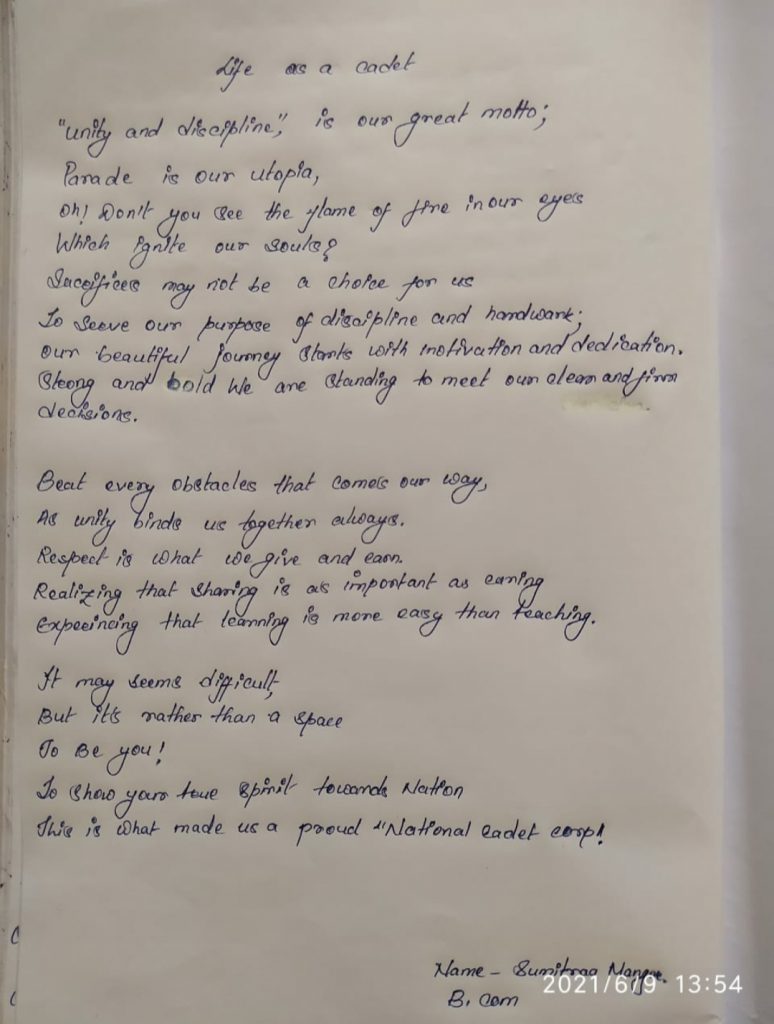 Life as a cadet
"Unity and discipline", is our great motto;
Parade is our utopia,
Oh! Don't you see the flame of fire in our eyes
Which ignite our souls?
Sacrifices may not be a choice for us
To serve our purpose of discipline and hardwark;
Our beautiful journey starts with motivation and dedication.
Strong and bold We are standing to meet our clear and firm
decisions.
Beat every obstacles that comes our way,
As unity binds us together always.
Respect is what we give and earn.
Realizing that sharing is as important as earning
Expeeincing that learning is more easy than teaching.
It may seems difficult,
But it's rather than a space
To Be you!
To show your true spirit towards Nation
This is what made us a proud "National cadet corp!
Name - Sumitraa
B. Com
2021/6/9 13:54